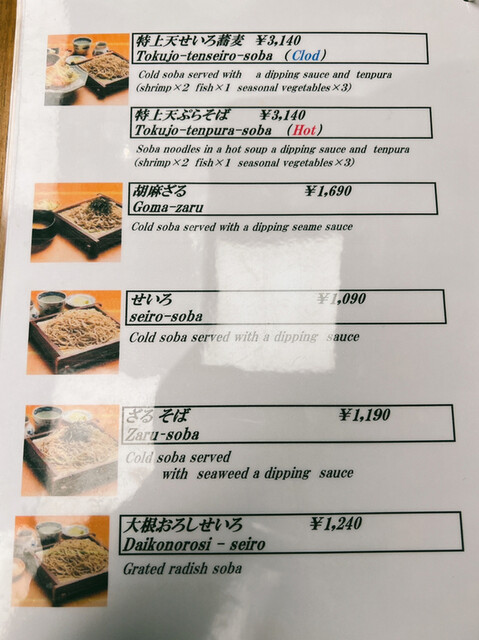 特上天せいろ蕎麦 ￥3,140
Tokujo-tenseiro-soba (Clod)
Cold soba served with a dipping sauce and tenpura
(shrimp×2 fish×1 seasonal vegetables×3)
特上天ぷらそば ￥3,140
Tokujo-tenpura-soba (Hot)
Soba noodles in a hot soup a dipping sauce and tenpura
(shrimp×2 fish×1 seasonal vegetables×3)
胡麻ざる ￥1,690
Goma-zaru
Cold soba served with a dipping seame sauce
せいろ ￥1,090
seiro-soba
Cold soba served with a dipping sauce
ざるそば ￥1,190
Zaru-soba
Cold soba served
with seaweed a dipping sauce
大根おろしせいろ ￥1,240
Daikonorosi - seiro
Grated radish soba